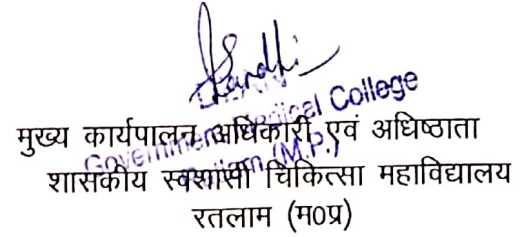 DEAN
Government Medical College
Ratlam (M.P.)
मुख्य कार्यपालन अधिकारी एवं अधिष्ठाता
शासकीय स्वशासी चिकित्सा महाविद्यालय
रतलाम (म0प्र)